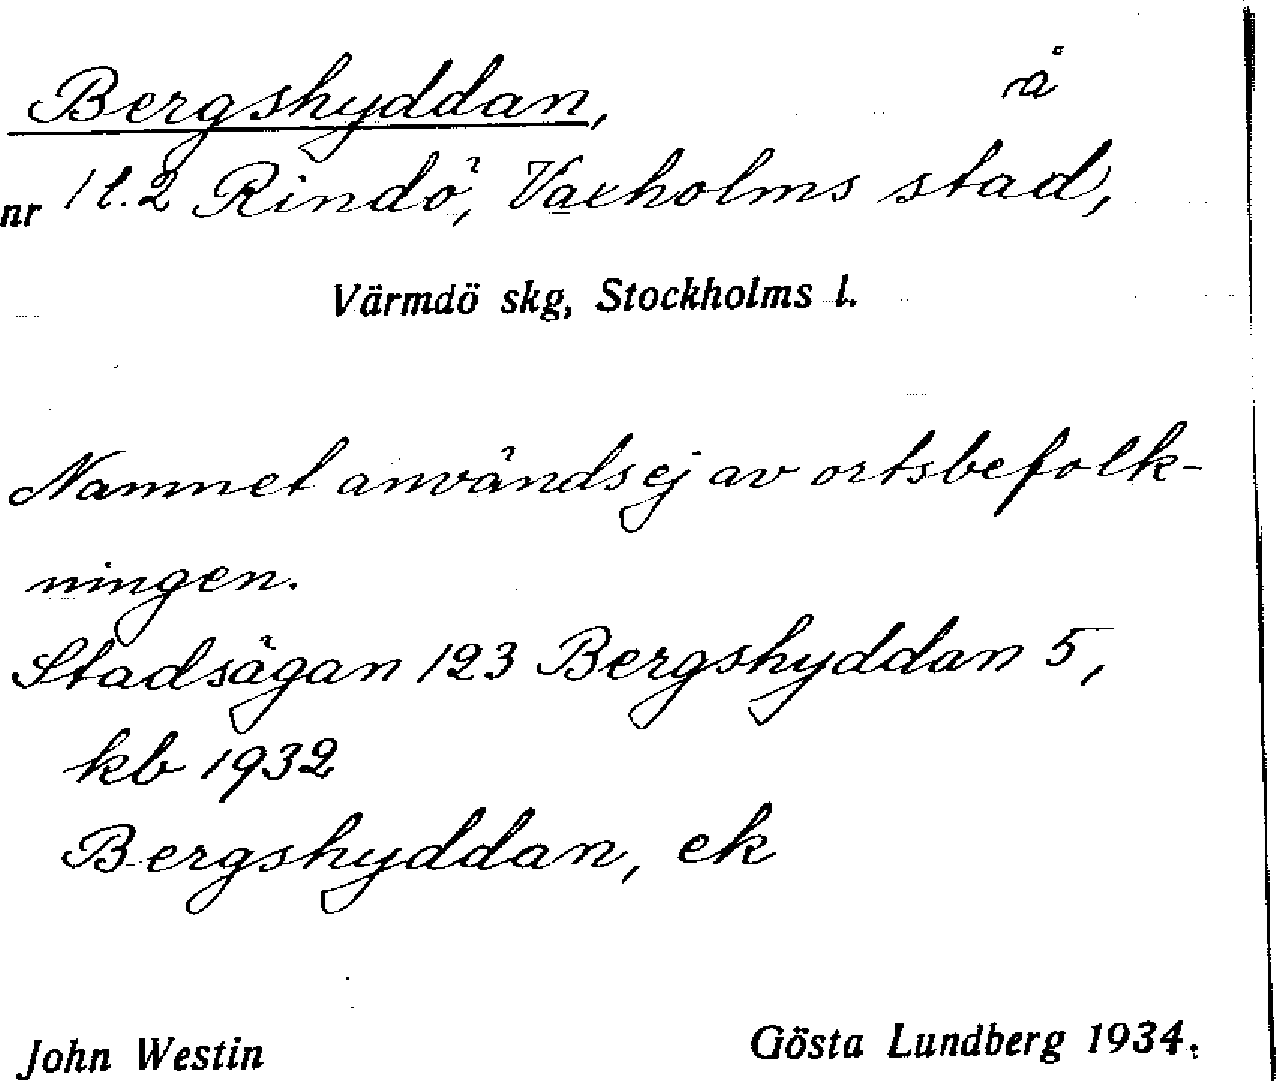 Bergshyddan, å
nr 1 l. 2 Rindö, Vaxholms stad,
Värmdö skg, Stockholms l.
Namnet användsej av ortsbefolk-
ningen.
Stadsägan 123 Bergshyddan 5,
kb 1932
Bergshyddan, ek
John Westin Gösta Lundberg 1934.